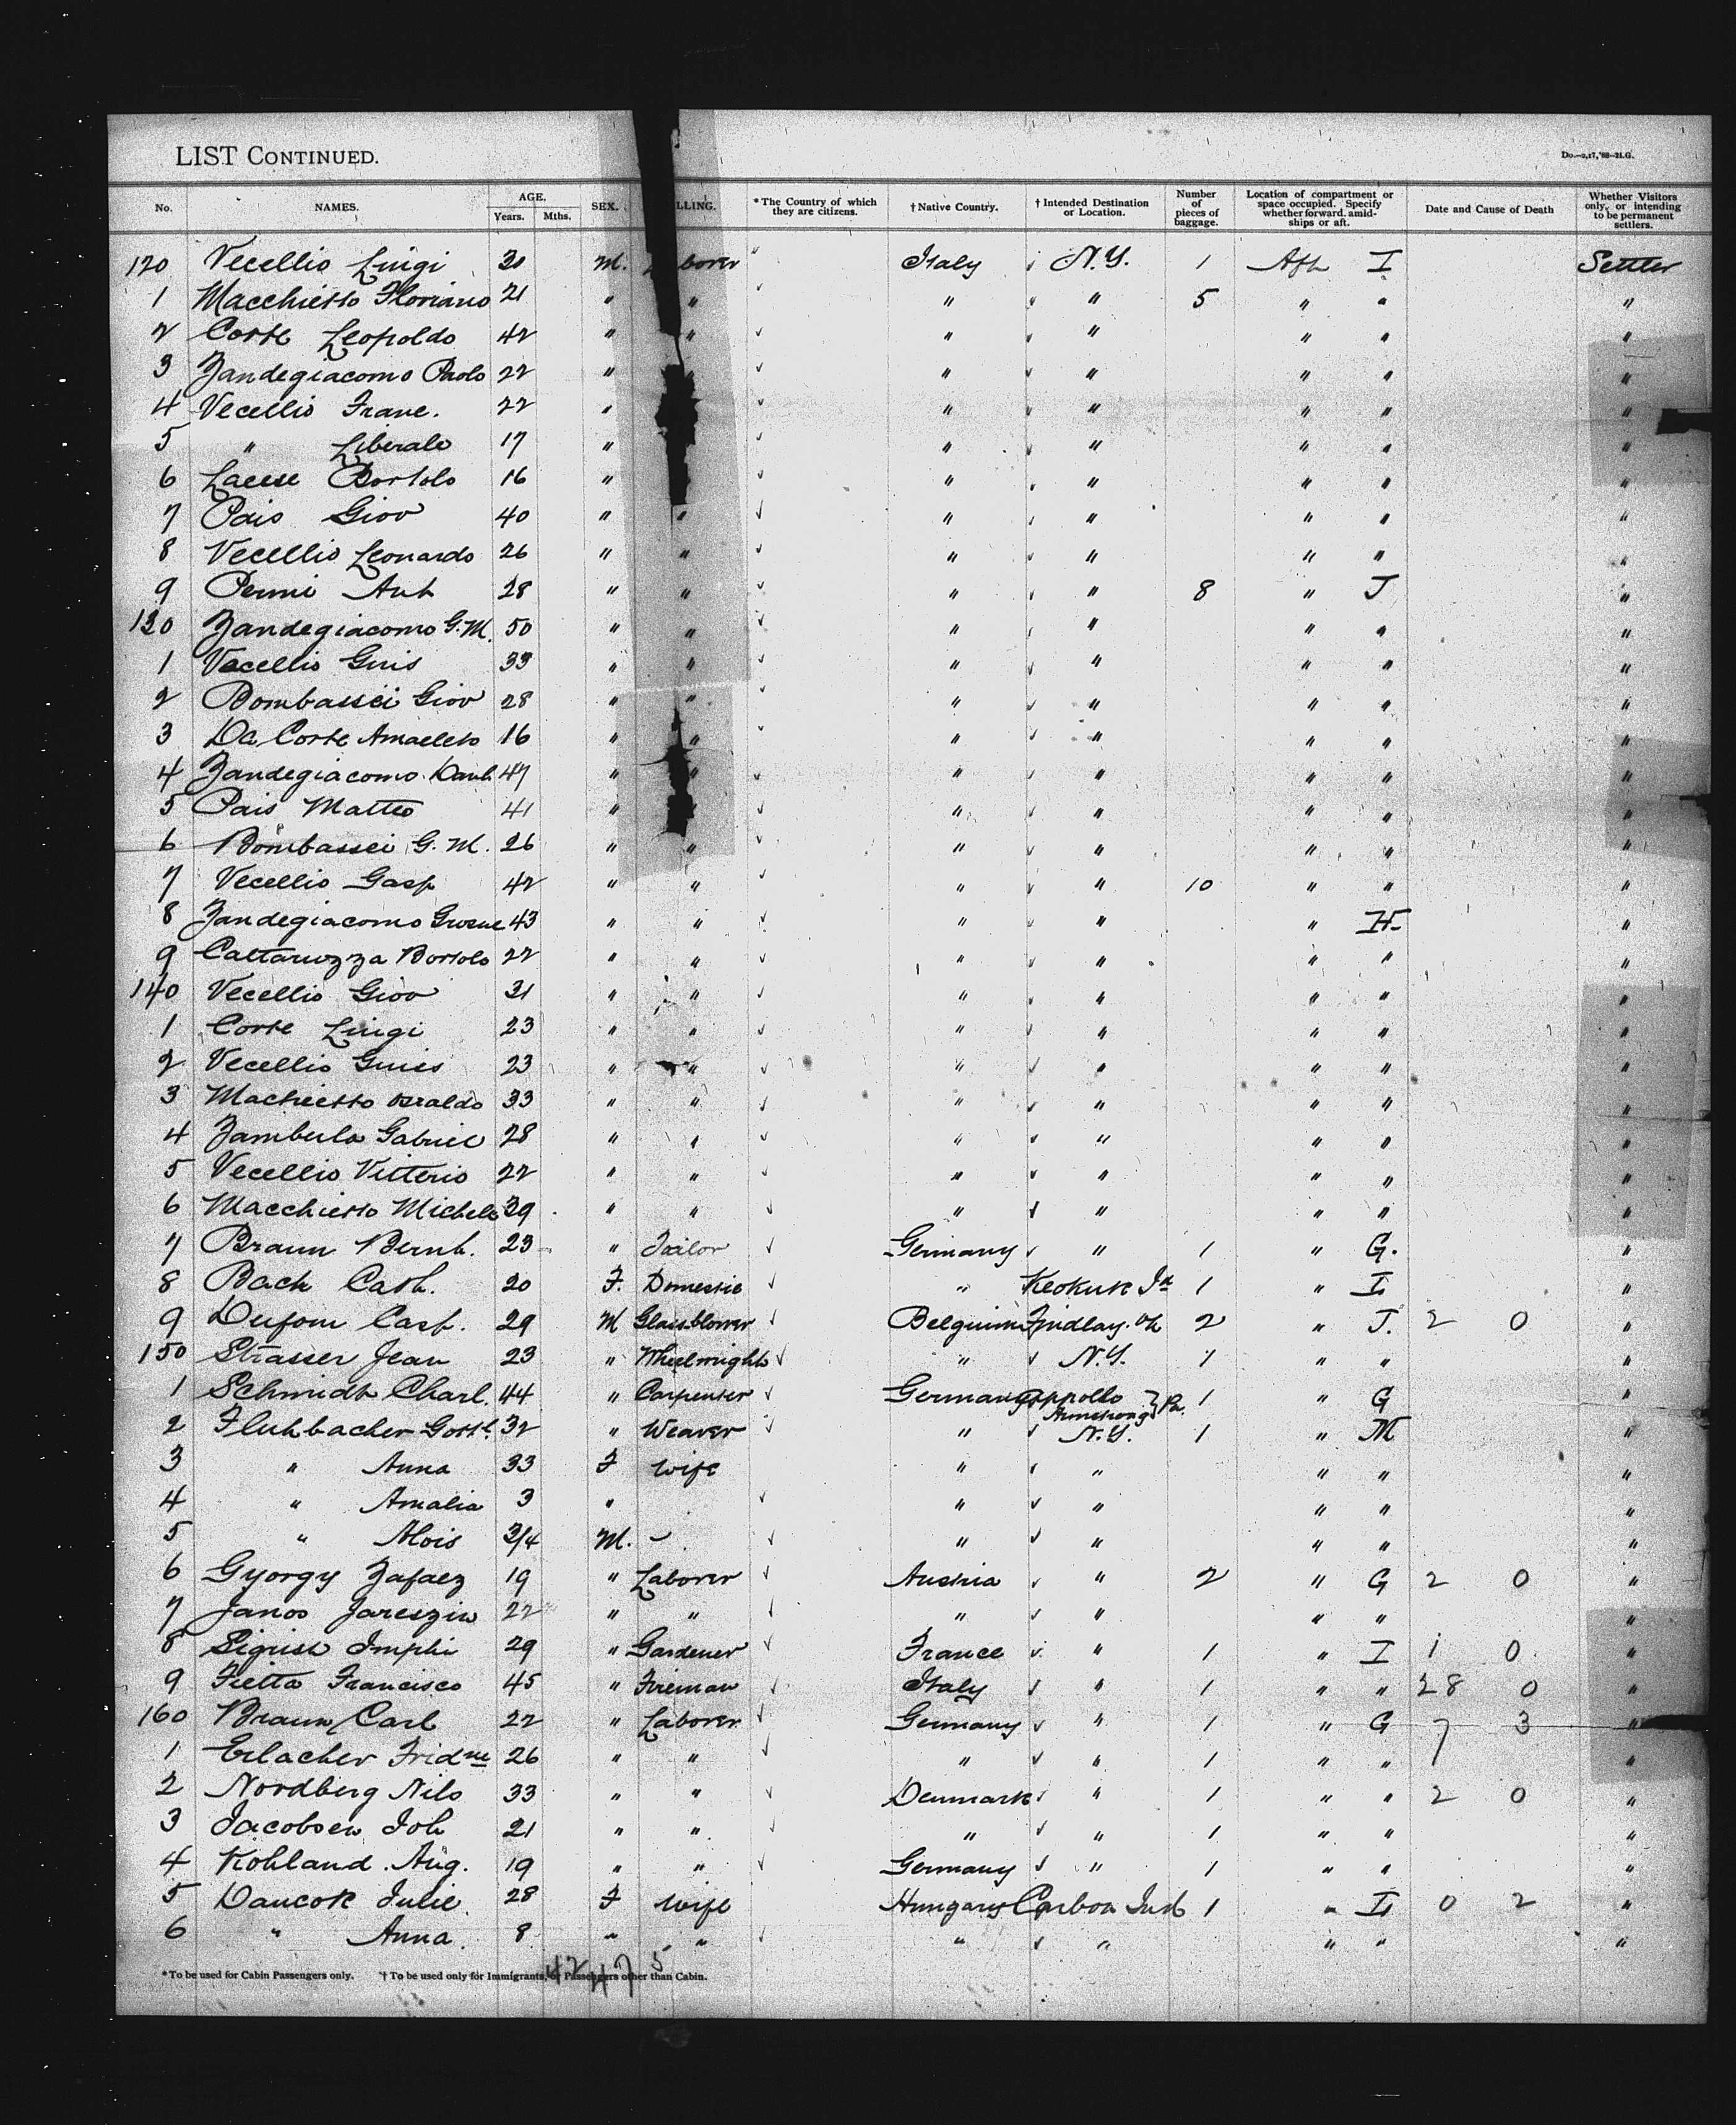 LIST CONTINUED.
Do.—2,17,'88—21.G.
No. NAMES. AGE. Years. Mths. SEX. LLING. *The Country of which they are citizens. †Native Country. †Intended Destination or Location. Number of pieces of baggage. Location of compartment or space occupied. Specify whether forward, amid-ships or aft. Date and Cause of Death Whether Visitors only, or intending to be permanent settlers.
120 Vecellio Luigi 31 M. borer " Italy N.Y. 1 Aft I Settler
1 Macchietto Floriano 21 " " " " 5 " " "
2 Corte Leopoldo 42 " " " " " " "
3 Zandegiacomo Paolo 22 " " " " " "
4 Vecellio Franc. 22 " " " " " "
5 " Liberale 17 " " " " " "
6 Bortolo 16 " " " " " "
7 Pais Giov 40 " " " " " " "
8 Vecellio Leonardo 26 " " " " " " "
9 Ant 28 " " " " 8 " J "
130 Zandegiacomo G.M. 50 " " " " " " "
1 Vecellio Guis 33 " " " " " " "
2 Bombassei Giov 28 " " " " " " "
3 Da Corte 16 " " " " " " "
4 Zandegiacomo 47 " " " " " " "
5 Pais Matteo 41 " " " " " "
6 Bombassei G. M. 26 " " " " " " "
7 Vecellio Gasp 42 " " " " 10 " " "
8 Zandegiacomo 43 " " " " " H "
9 Cattaruzza Bortolo 22 " " " " " " "
140 Vecellio Giov 31 " " " " " " "
1 Corte Luigi 23 " " " " " " "
2 Vecellio Guis 23 " " " " " " "
3 Machietto Osvaldo 33 " " " " " " "
4 Zamberla Gabriel 28 " " " " " " "
5 Vecellio Vittorio 22 " " " " " " "
6 Macchietto Michele 39 " " " " " " "
7 Braun Bernh. 23 " Tailor Germany " 1 " G. "
8 Bach Cath. 20 F. Domestic " Keokuk Ia 1 " I "
9 Dufour Casp. 29 M Glassblower Belgium Findlay. Oh 2 " J. 2 0 "
150 Strasser Jean 23 " Wheelwright " N.Y. 1 " " "
1 Schmidt Charl. 44 " Carpenter Germany Appollo Armstrong } Pa. 1 " G "
2 Fluhbacher Gottl. 32 " Weaver " N.Y. 1 " M "
3 " Anna 33 F wife " " " " "
4 " Amalia 3 " " " " " "
5 " Alois 3/4 M. – " " " " "
6 Gyorgy 19 " Laborer Austria " 2 " G 2 0 "
7 Janos 22 " " " " " " "
8 Sigrist 29 " Gardener France " 1 " I 1 0 "
9 Fietta Francisco 45 " Fireman Italy " 1 " " 28 0 "
160 Braun Carl 22 " Laborer Germany " 1 " G 7 3 "
1 Erlacher Fridne 26 " " " " 1 " " "
2 Nordberg Nils 33 " " Denmark " 1 " " 2 0 "
3 Jacobsen Joh 21 " " " " 1 " " "
4 Kohland. Aug. 19 " " Germany " 1 " " "
5 Dancok Julie. 28 F wife Hungary Carbon Ind 1 " I 0 2 "
6 " Anna. 8 " " " " " " "
*To be used for Cabin Passengers only. †To be used only for Immigrants, or Passengers other than Cabin.
42 47 5